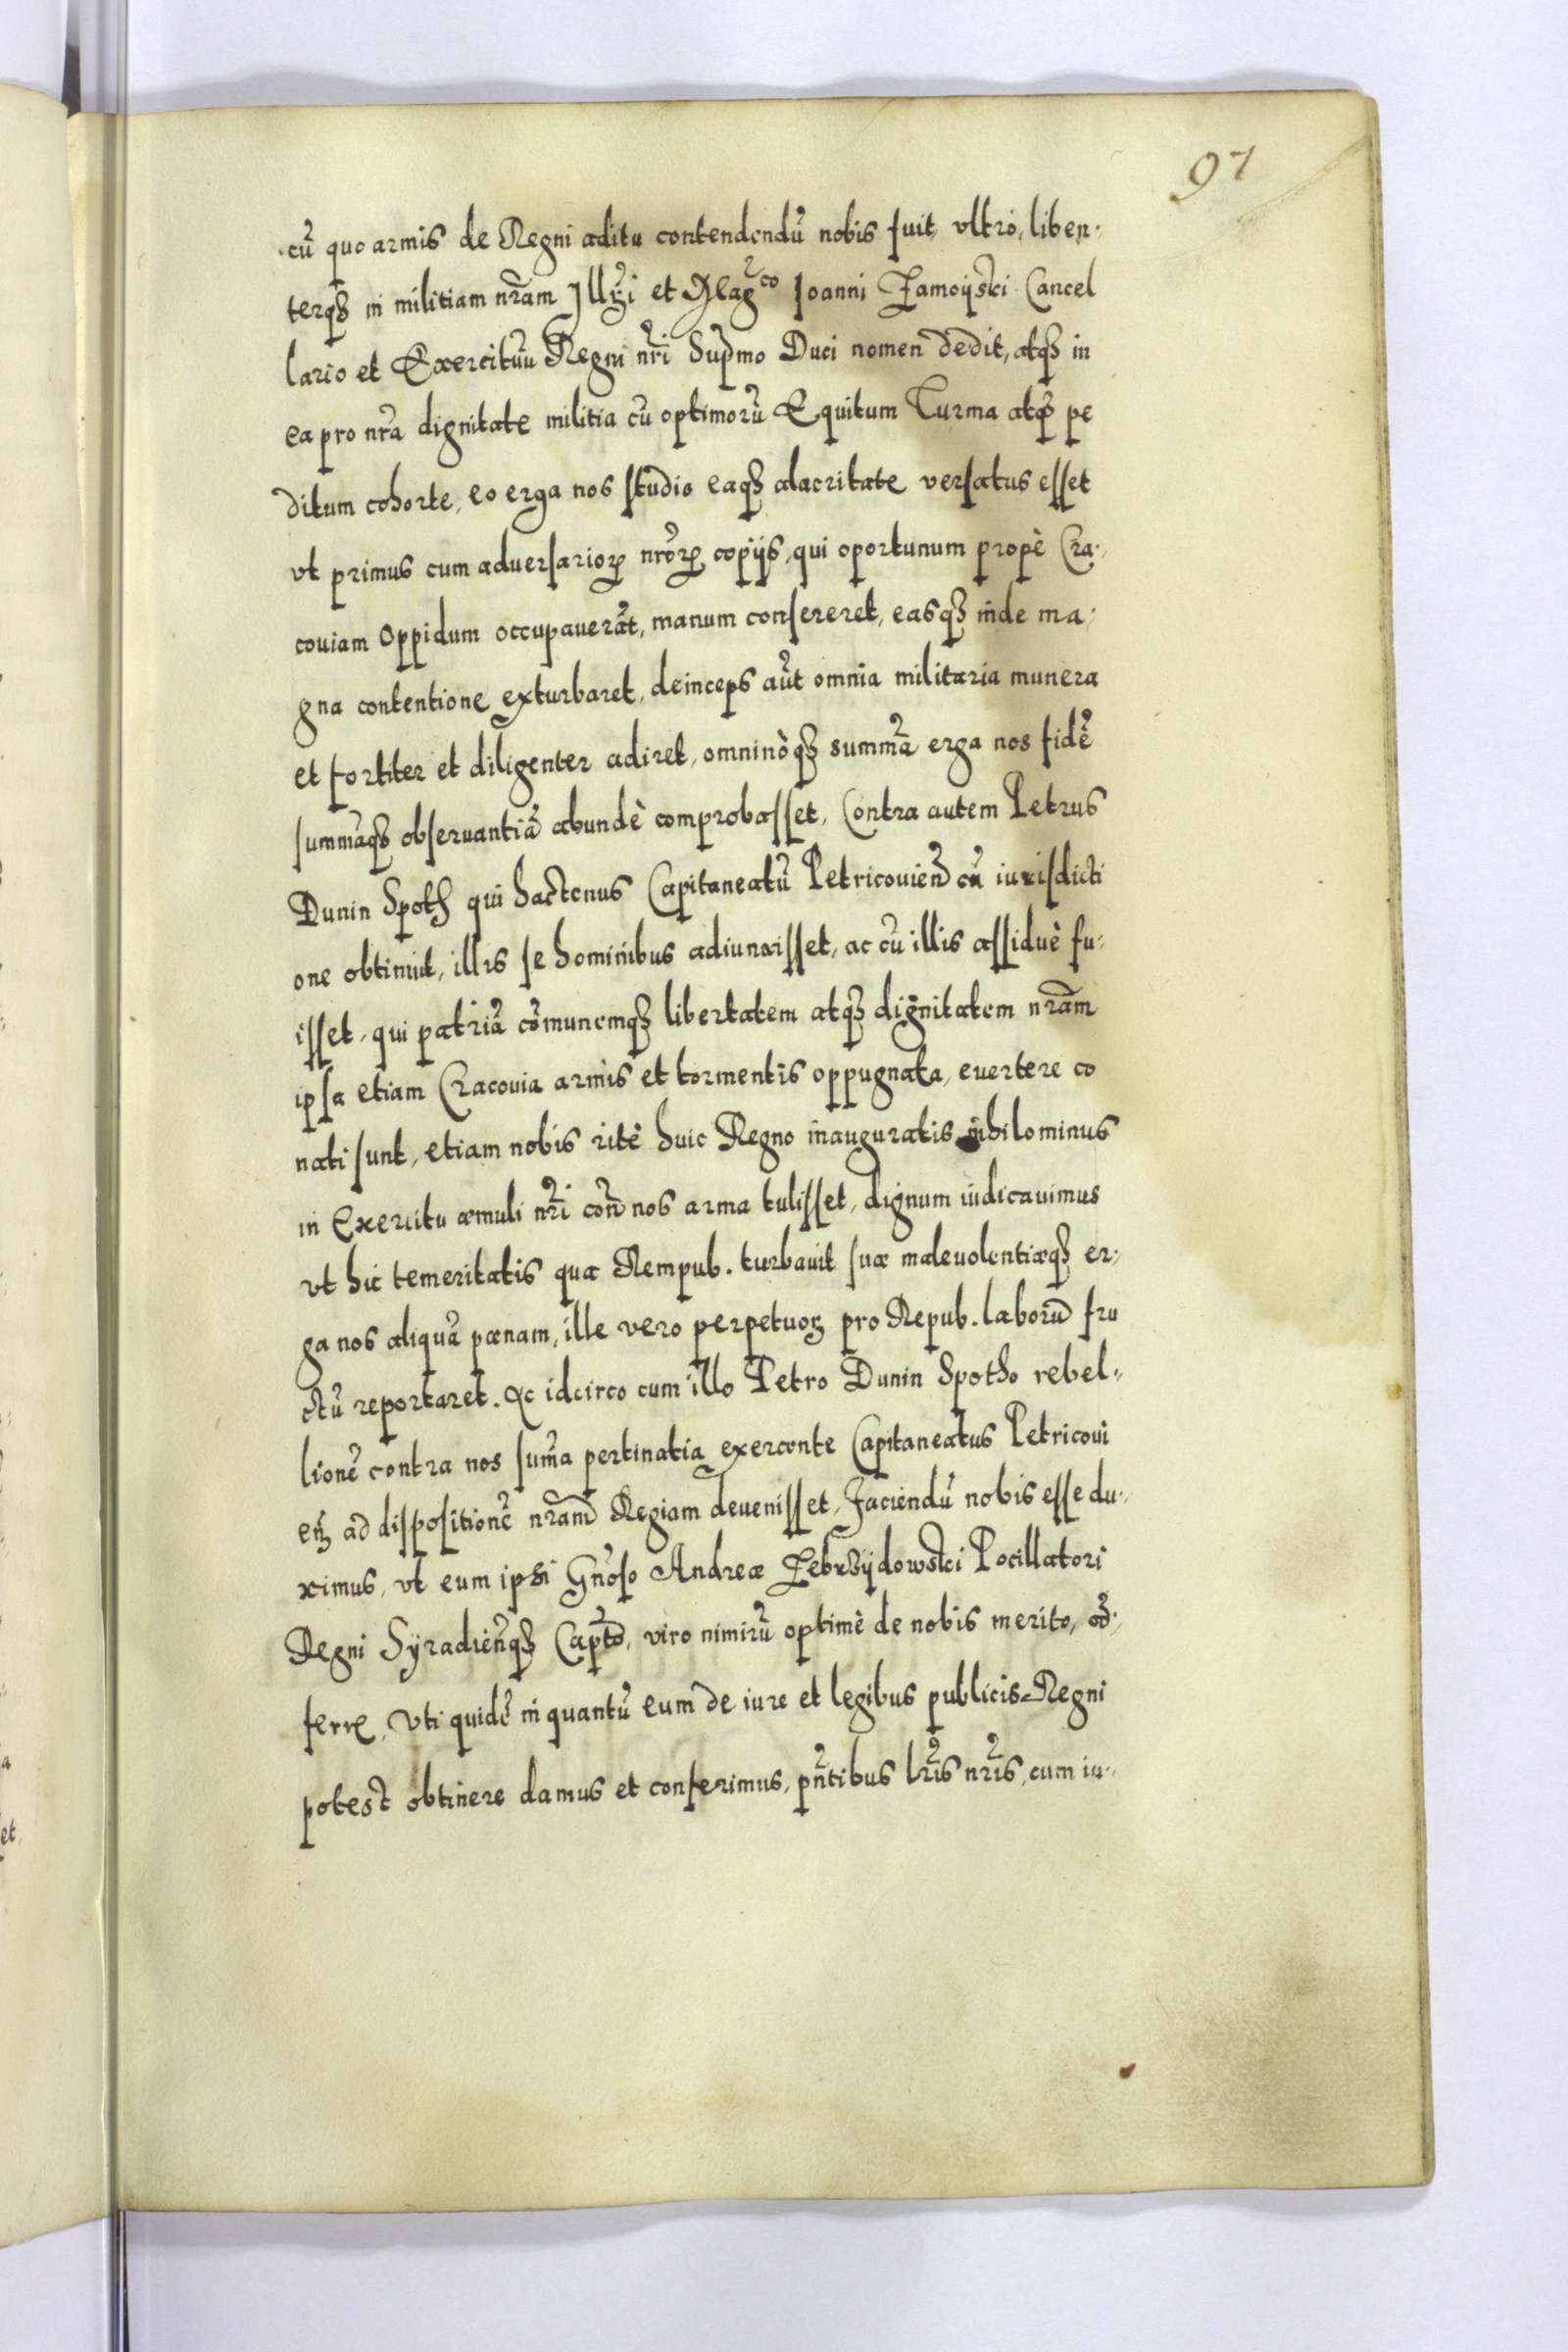 97
cũ quo armis de Regni aditu contendendũ nobis fuit, vltrò, liben-
terqꝫ in militiam nr̃am Illr̃i et Magco Ioanni Zamoyski Cancel
lario et Exercituũ Regni nr̃i Supmo Duci nomen dedit, atqꝫ in
ea pro nr̃a dignitate militia cũ optimorũ Equitum Turma atqꝫ pe
ditum cohorte, eo erga nos studio eaqꝫ alacritate versatus esset
vt primus cum aduersarioꝝ nr̃oꝝ copijs, qui oportunum propè Cra-
couiam Oppidum occupauerãt, manum consereret, easqꝫ inde ma-
gna contentione exturbaret, deinceps aũt omnia militaria munera
et fortiter et diligenter adiret, omninòqꝫ summã erga nos fidẽ
summãqꝫ obseruantiã abundè comprobasset, Contra autem Petrus
Dunin Spoth qui hactenus Capitaneatũ Petricouieñ cũ iurisdicti
one obtinuit, illis se hominibus adiunxisset, ac cũ illis assiduè fu-
isset, qui patriã cõmunemqꝫ libertatem atqꝫ dignitatem nr̃am
ipsa etiam Cracouia armis et tormentis oppugnata, euertere co
nati sunt, etiam nobis ritè huic Regno inauguratis nihilominus
in Exercitu æmuli nr̃i coñ nos arma tulisset, dignum iudicauimus
vt hic temeritatis qua Rempub. turbauit suæ maleuolentiæqꝫ er-
ga nos aliquã pœnam, ille vero perpetuoꝝ pro Repub. laborũ fru
ctũ reportaret. Ac idcirco cum illo Petro Dunin Spotho rebel-
lionẽ contra nos sum̃a pertinatia exercente Capitaneatus Petricoui
eñ ad dispositionẽ nr̃am Regiam deuenisset, Faciendũ nobis esse du-
ximus, vt eum ipsi Gñoso Andreæ Zebrzydowski Pocillatori
Regni Syradieñqꝫ Capto, viro nimirũ optimè de nobis merito, cõ-
ferre, Vti quidẽ in quantũ eum de iure et legibus publicis Regni
potest obtinere damus et conferimus, pñtibus lr̃is nr̃is, cum iu-